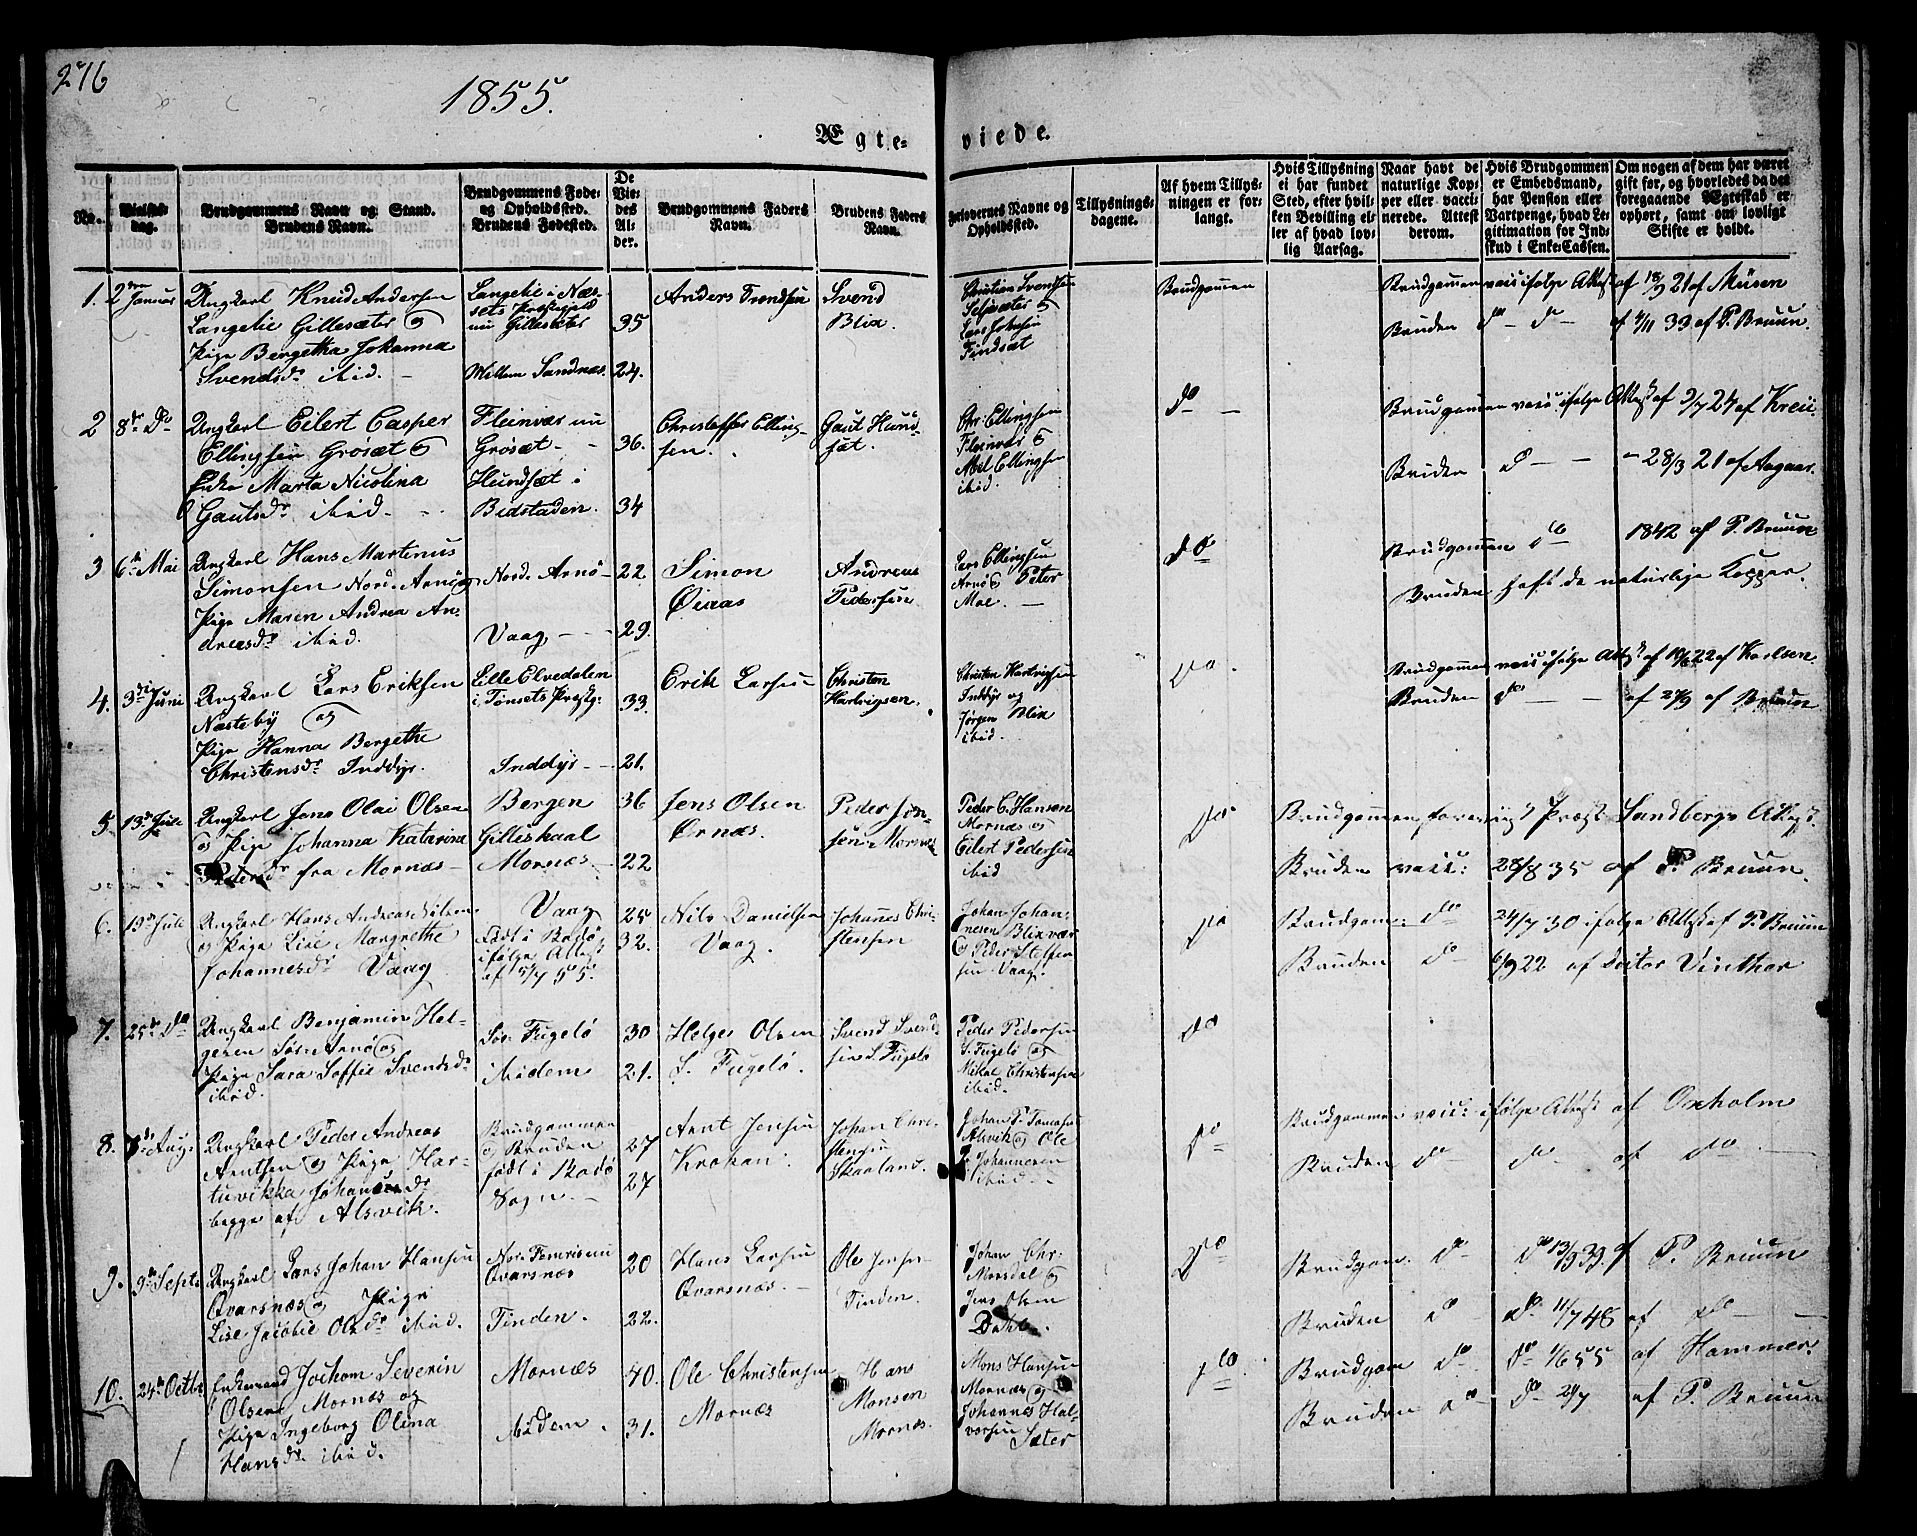 276
1855.
Ægteviede.
No.
Vielses-dag.
Brudgommens Navn og Stand.
Brudens Navn.
Brudgommens Føde-
og Opholdssted.
Brudens Fødested.
De
Vie-
des
Al-
der.
Brudgommens Faders
Navn.
Brudens Faders
Navn.
Forlovernes Navne og
Opholdssted.
Tillysnings-
dagene.
Af hvem Tillys-
ningen er for-
langt.
Hvis Tillysning
ei har fundet
Sted, efter hvil-
ken Bevilling el-
ler af hvad lov-
lig Aarsag.
Naar havt de
naturlige Kop-
per eller vacci-
nerede. Attest
derom.
Hvis Brudgommen
er Embedsmand,
har Pension eller
Vartpenge, hvad Le-
gitimation for Ind-
skud i Enke-Cassen.
Om nogen af dem har været
gift før, og hvorledes da det
foregaaende Ægtestad er
ophørt, samt om lovligt
Skifte er holdt.
1. 2den Januar
Ungkarl Knud Andersen
Langelie Gillesæter &
Pige Bergetha Johanna
Svendsdr ibid. -
Langelie i Næs-
sets Præstegjeld
nu Gillesæter
Mellem Sandnæs.
35
24.
Anders Trondsen
Svend
Blix.
Christian Svendsen
Selsæter &
Lars Johnsen
Findsæt
Brudgommen
Brudgommen vacc: ifølge Attest af 18/9 21 af Müsen
Bruden do - do - af 4/11 33 af P. Bruun.
2 8de Do
Ungkarl Eilert Casper
Ellingsen Grøsæt &
Enke Marta Nicolina
Gautsdr ibid.
Fleinvær nu
Grøsæt -
Hundsæt i
Bedstaden.
36.
34
Christoffer Elling-
sen.
Gaut Hund-
sæt.
Chr: Ellingsen
Fleinvær &
Mel Ellingsen
ibid.
do -
Brudgommen vacc: ifølge Attest af 9/7 24 af Kreü-
Bruden do - - - 28/3 21 af Aagaar.
3 6te Mai
Ungkarl Hans Martinus
Simonsen Nord-Arnø &
Pige Maren Andrea An-
dreasdr ibid.
Nord-Arnø -
Vaag - -
22
29.
Simon
Øiaas
Andreas
Pedersen
Lars Ellingsen
Arnø & Peter
Moe. -
do
Brudgommen do 1842 af P. Bruun
Bruden haft de naturlige Kopper.
4. 3die Juni
Ungkarl Lars Eriksen
Næsteby og
Pige Hanna Bergethe
Christensdr Inddyr.
Lille Elvedalen
i Tønsets Præstg:
Inddyr -
33.
21.
Erik Larsen
Christen
Hartvigsen.
Christen Hartvigsen
Inddyr og
Jørgen Blix
ibid.
do.
Brudgommen vacc: ifølge Attest af 19/6 22 af Karlsen.
Bruden do - af 27/9 af Bruun
5. 13de Juli
Ungkarl Jens Olai Olsen
& Pige Johanna Katarina
Pedersdr fra Mornæs -
Bergen
Gilleskaal
Mornæs. -
36
22
Jens Olsen
Ørnæs.
Peder Jen-
sen Mornæs
Peder C. Hansen
Mornæs &
Eilert Pedersen
ibid
do
Brudgommen foreviist Præst Sandbergs Attest.
Bruden vacc: 28/8 35 af P. Bruun.
6. 13de Juli
Ungkarl Hans Andreas Nilsen
& Pige Lise Margrethe
Johannesdr Vaag
Vaag
Født i Bodø
ifølge Attest
af 5/7 55.
25
32.
Nils Danielsen
Vaag.
Johannes Chri-
stensen
Johan Johan-
nesen Blixvær
& Peder Steffen-
sen Vaag.
do
Brudgom: do 24/7 30 ifølge Attest af P. Bruun
Bruden do 6/9 22 af Doctor Vinther
7. 25de do
Ungkarl Benjamin Hel-
gesen Sør-Arnø og
Pige Sara Soffie Svendsdr
ibid.
Sør Fugelø
ibidem
30
21.
Helge Olsen
S. Fugelø.
Svend Svend-
sen S. Fugelø
Peder Pedersen
S. Fugelø og
Mikal Christensen
ibid.
do
8. Aug:
Ungkarl Peder Andreas
Arntsen & Pige Har-
tuvikka Johansdr
begge af Alsvik.
Brudgommen
& Bruden
født i Bodø
Sogn. -
27
27
Arnt Jensen
Krokan.
Johan Chri-
stensen
Skaaland.
Johan P. Tomasen
Alsvik & Ole
Johannesen
ibid. -
do
Brudgommen vacc: ifølge Attest af Oxholm
Bruden do do af do -
9. 9de Septe
Ungkarl Lars Johan Hansen
Qvarsnæs & Pige
Lise Jacobie Olsdr ibid.
Nor-Femris nu
Qvarsnæs
Finden.
20
22.
Hans Larsen
Qvarsnæs. -
Ole Jensen
Finden.
Johan Chr:
Morsdal &
Jens Olsen
Dahl.
do
Brudgom. do do 13/9 39. af P. Bruun
Bruden do do 11/7 48 af do -
10. 24de Octbr
Enkemand Jochom Severin
Olsen Mornæs og
Pige Ingeborg Olina
Hansdr ibid.
Mornæs
ibidem.
40.
31.
Ole Christensen
Mornæs
Hans
Monsen
Mornæs.
Mons Hansen
Mornæs &
Johannes Hal-
vorsen
Sæter
do
Brudgom do do 1/6 55 af Hammer.
Bruden do do 2/7 af P. Bruun